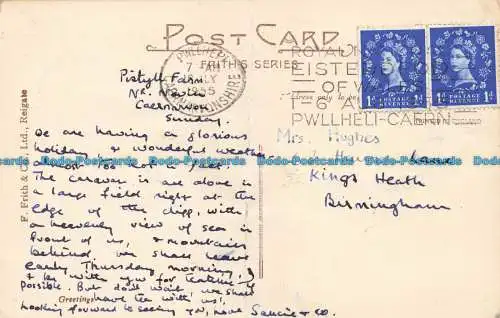 POST CARD
FRITH'S SERIES
F. Frith & Co. Ltd., Reigate
PWLLHELI
7
JULY
1955
CAERNARVONSHIRE
ROYAL N
EISTE
OF W
1-6 A
PWLLHELI-CAERN.
1d POSTAGE REVENUE 1d
1d POSTAGE REVENUE 1d
Pistyll Farm
Nr. Nevin
Caernarvon
Sunday.
We are having a glorious
holiday & wonderful weather
almost too hot in fact.
The caravan is all alone in
a large field right at the
edge of the cliff, with
a heavenly view of sea in
front of us, & mountains
behind, we shall leave
early Thursday morning,
& be with you for teatime if
possible. But don't wait, we shall
Greetings have tea with us!
Looking forward to seeing you, love & co.
Mrs. Hughes
Lane
Kings Heath
Birmingham
Bods Postcards Bods Postcards Bods Postcards Bods Postcards